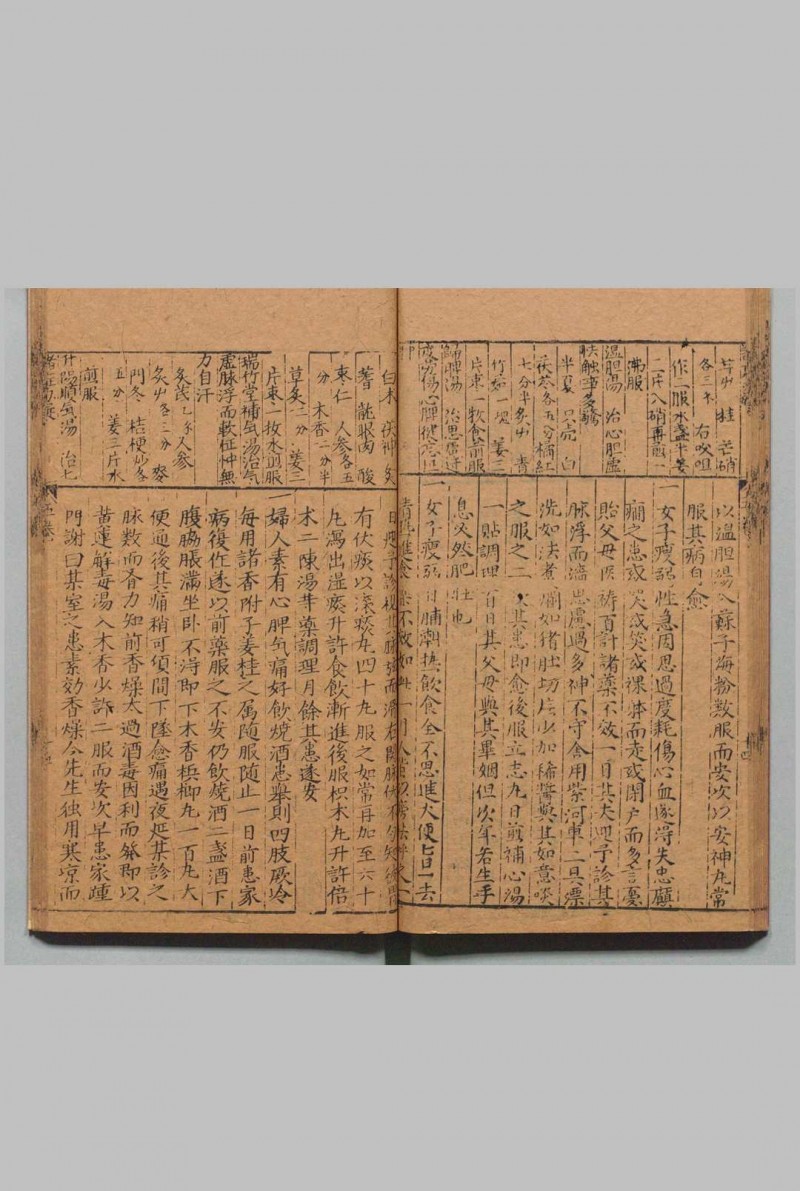 芽屮 桂 芒硝
各三不 右㕮咀
作一服水盞半姜
二片入硝再煎一
沸服
温胆湯 治心胆虚
怯触事多驚
半夏 只壳 白
茯苓各五分橘紅
七分半炙屮 青
竹如一塊 姜三
片枣一枚食前服
歸脾湯 治思慮過
度労傷心脾健忘怔
以温胆湯入蘇子海粉数服而安次以安神丸常
服其病自愈
一女子瘦弱性急因思過度耗傷心血遂淂失忠癲
癎之患或哭或笑或裸体而走或閉户而多言憂
貽父母医祷百計諸藥不效一日其夫延予診其
脉浮而濇思慮過多神不守舍用紫河車二具漂
洗如法煮爛如猪肚切片少加稀醬與其如意啖
之服之二 其患即愈後服立志丸日煎補心湯
一贴調理百日其父母與其畢姻但次年若生手
息必然肥壮也
一女子瘦弱日晡潮热飲食全不思進大便七日一去
白术 茯神 炙
蓍 龍眼肉 酸
枣仁 人参各五
分 木香二分半
草炙二分 姜三
片枣一枚水煎服
瑞竹堂補気湯治気
虚脉浮而軟怔忡無
力自汗
炙芪 人参
炙屮各二分 麥
門冬 桔梗炒各
五分 姜三片水
煎服
升陽順気湯 治七
有伏痰以滚痰丸四十九服之如常再加至六十
丸瀉出湿痰升許食飲漸進後服枳木丸升許倍
术二陳湯等藥調理月餘其患遂安
一婦人素有心脾気痛好飲燒酒患舉則四肢厥冷
每用諸香附子姜桂之属随服随止一日前患家
病復作遂以前藥服之不安仍飲燒酒二盞酒下
腹脇脹滿坐卧不淂即下木香梹榔丸一百丸大
便通後其痛稍可頃間下墜愈痛過夜延某診之
脉数而有力知前香燥太過酒毒因利而発即以
黄連觧毒湯入木香少許二服而安次早患家踵
門谢曰某室之患素効香燥今先生独用寒凉而